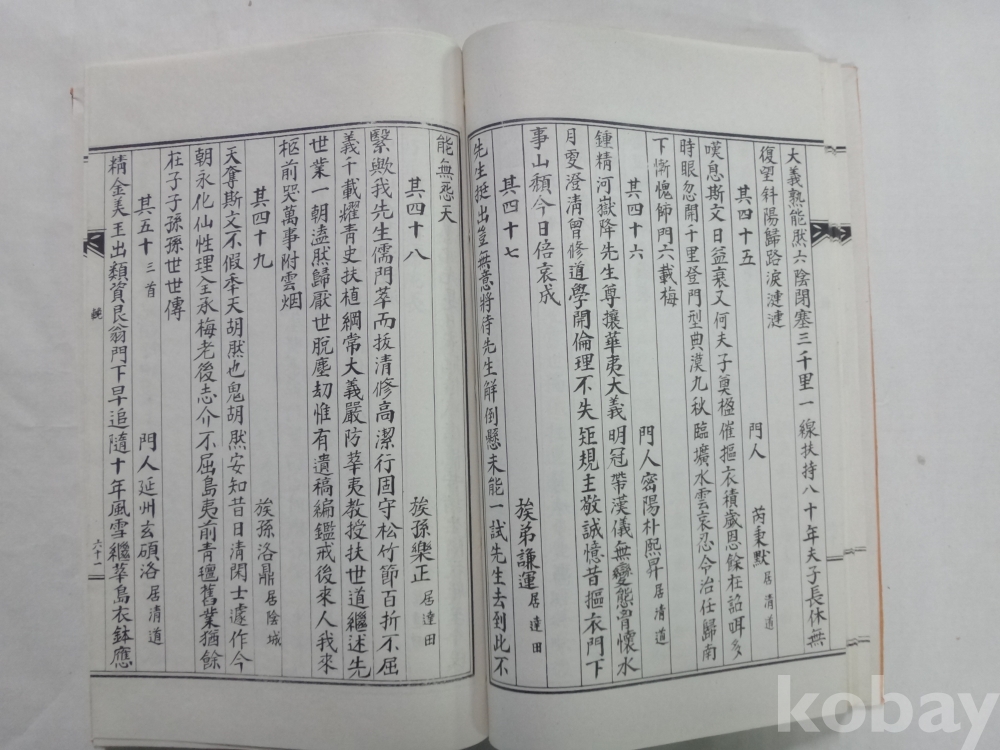 大義孰能然六陰閉塞三千里一線扶持八十年夫子長休無
復望斜陽歸路淚漣漣
其四十五 門人 芮秉默 居清道
嘆息斯文日益衰又何夫子奠楹催摳衣積歲恩餘在詔咡多
時眼忽開千里登門型典漠九秋臨壙水雲哀忍令治任歸南
下慚愧師門六載梅
其四十六 門人密陽朴熙昇 居清道
鍾精河嶽降先生尊攘華夷大義明冠帶漢儀無變態胷懷水
月更澄清曾修道學開倫理不失矩規主敬誠憶昔摳衣門下
事山頹今日倍哀成
其四十七 族弟謙運 居達田
先生挺出豈無意將待先生解倒懸未能一試先生去到此不
能無怨天
其四十八 族孫樂正 居達田
繄歟我先生儒門莘而拔清修高潔行固守松竹節百折不屈
義千載耀青史扶植綱常大義嚴防華夷教授扶世道繼述先
世業一朝溘然歸厭世脫塵劫惟有遺稿編鑑戒後來人我來
柩前哭萬事附雲烟
其四十九 族孫洛鼎 居陰城
天奪斯文不假秊天胡然也鬼胡然安知昔日清閑士遽作今
朝永化仙性理全承梅老後志介不屈島夷前青氊舊業猶餘
在子子孫孫世世傳
其五十 三首 門人延州玄碩洛 居清道
精金美玉出類資艮翁門下早追隨十年風雪繼華島衣鉢應
六十一
kobay